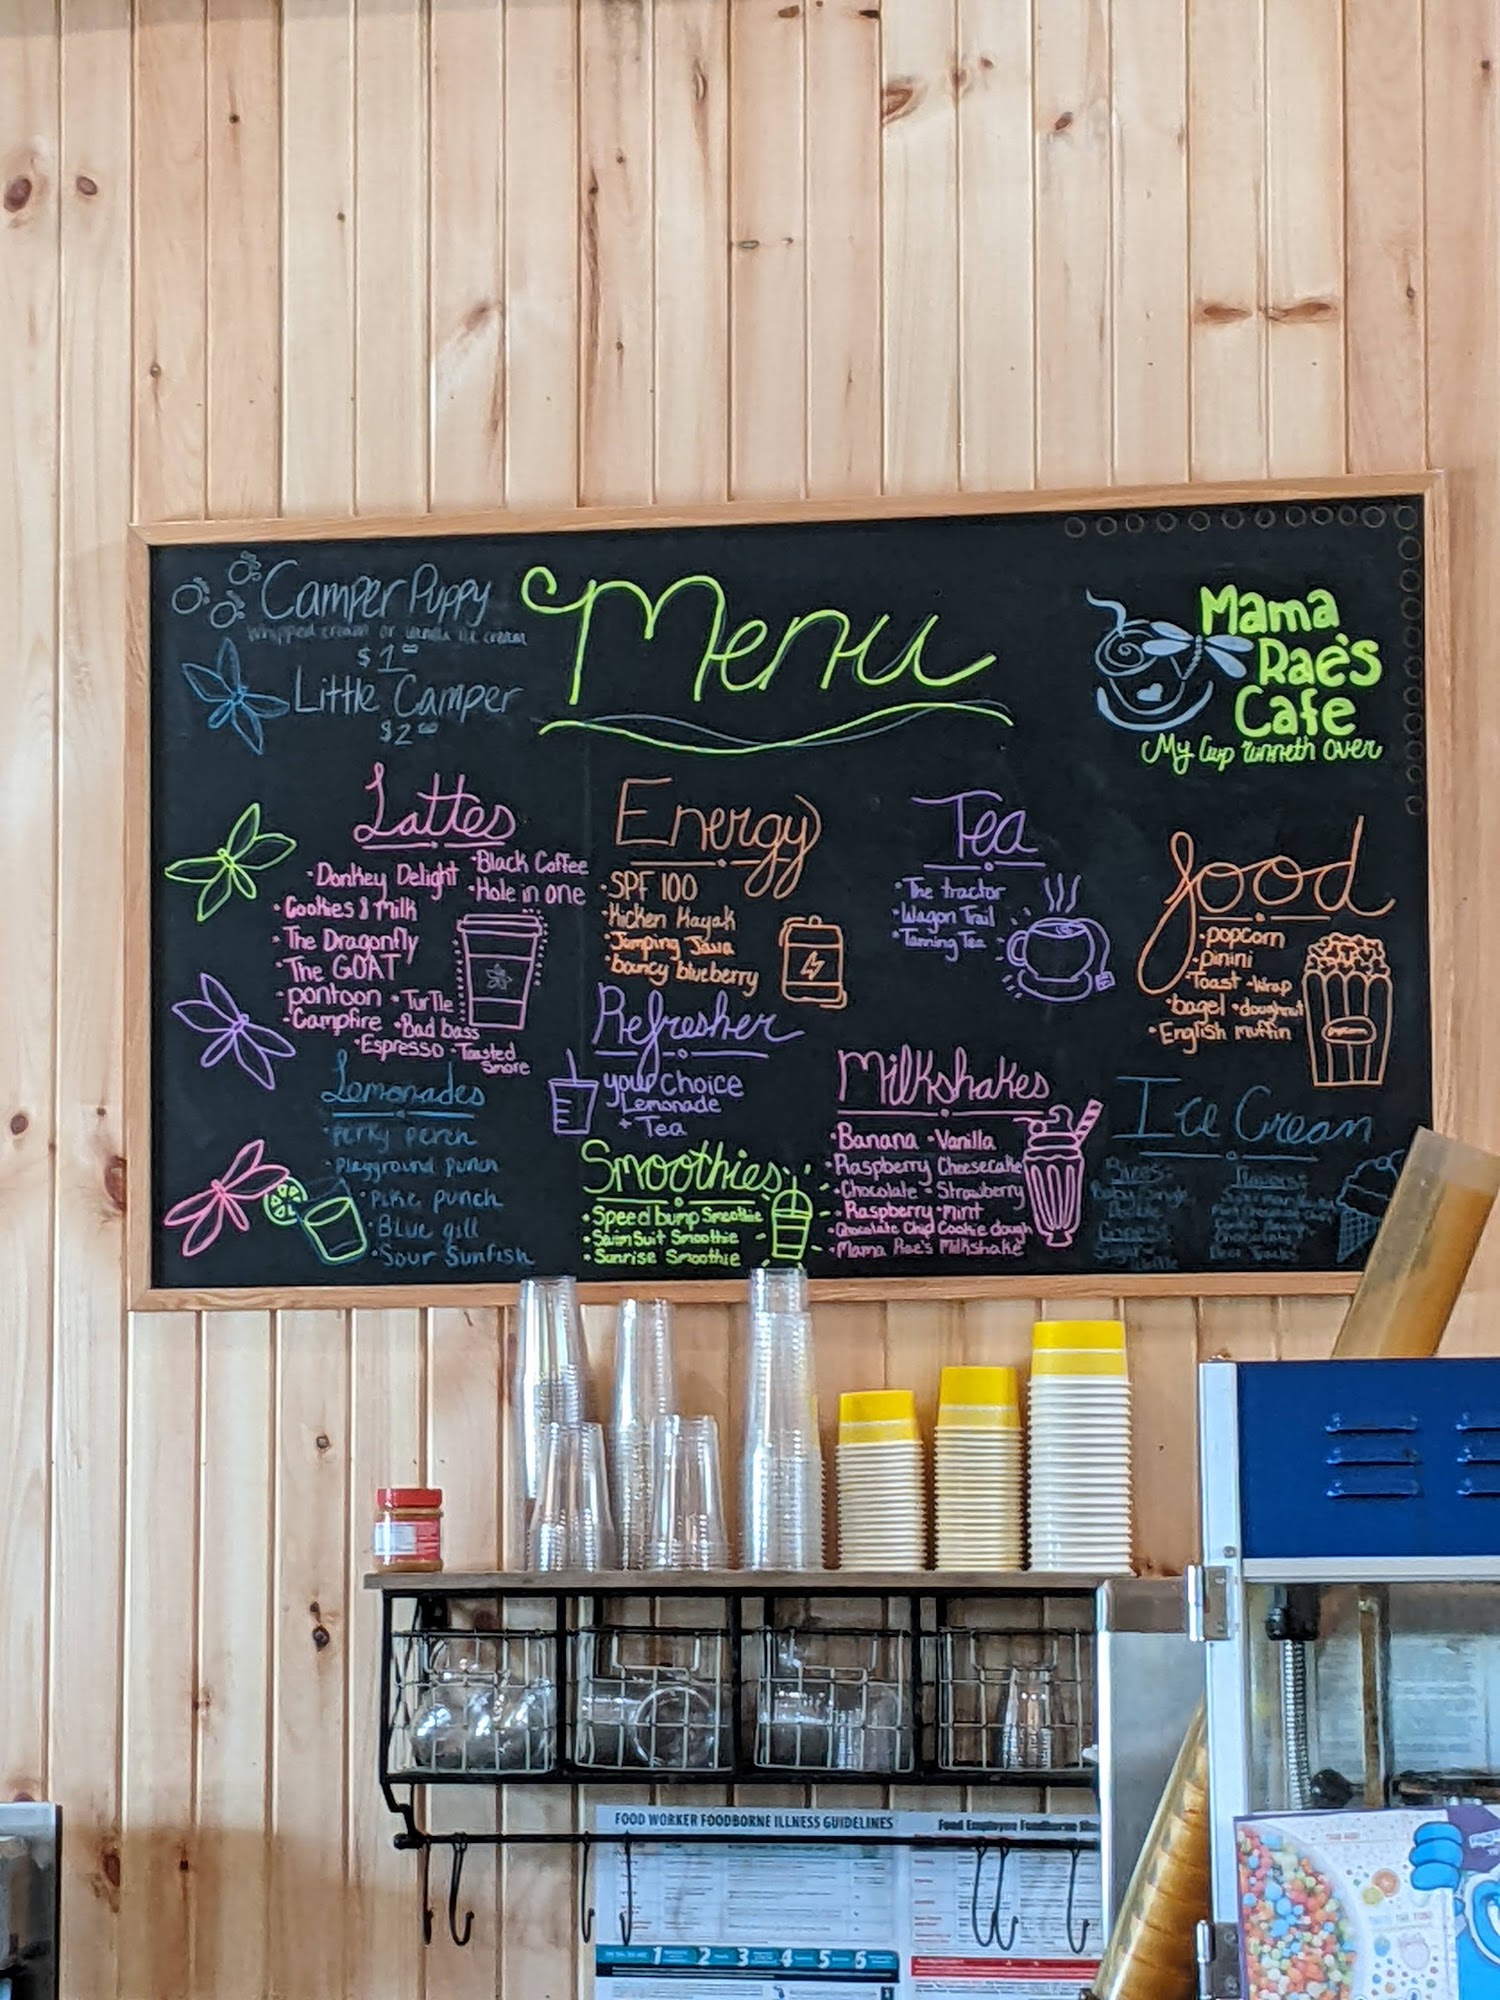 Camper Puppy
Whipped cream or vanilla ice cream
$1.00
Little Camper
$2.00
Menu
Mama
Rae's
Cafe
My Cup runneth over
Lattes
•Donkey Delight •Black Coffee
•Hole in one
•Cookies & Milk
•The Dragonfly
•The GOAT
•pontoon •Turtle
•Campfire •Bad bass
•Espresso •Toasted
Smore
Energy
•SPF 100
•Kicken Kayak
•Jumping Java
•bouncy blueberry
Tea
•The tractor
•Wagon Trail
•Tanning Tea
food
•popcorn
•pinini
•Toast •Wrap
•bagel •doughnut
•English muffin
Refresher
your Choice
Lemonade
+ Tea
Lemonades
•perky perch
•playground punch
•pike punch
•Blue gill
•Sour Sunfish
Smoothies
•Speed bump Smoothie
•Swim Suit Smoothie
•Sunrise Smoothie
Milkshakes
•Banana •Vanilla
•Raspberry Cheesecake
•Chocolate •Strawberry
•Raspberry •mint
•Chocolate Chip Cookie dough
•Mama Rae's Milkshake
Ice Cream
Flavors:
FOOD WORKER FOODBORNE ILLNESS GUIDELINES
Food Employee Foodborne
1 2 3 4 5 6